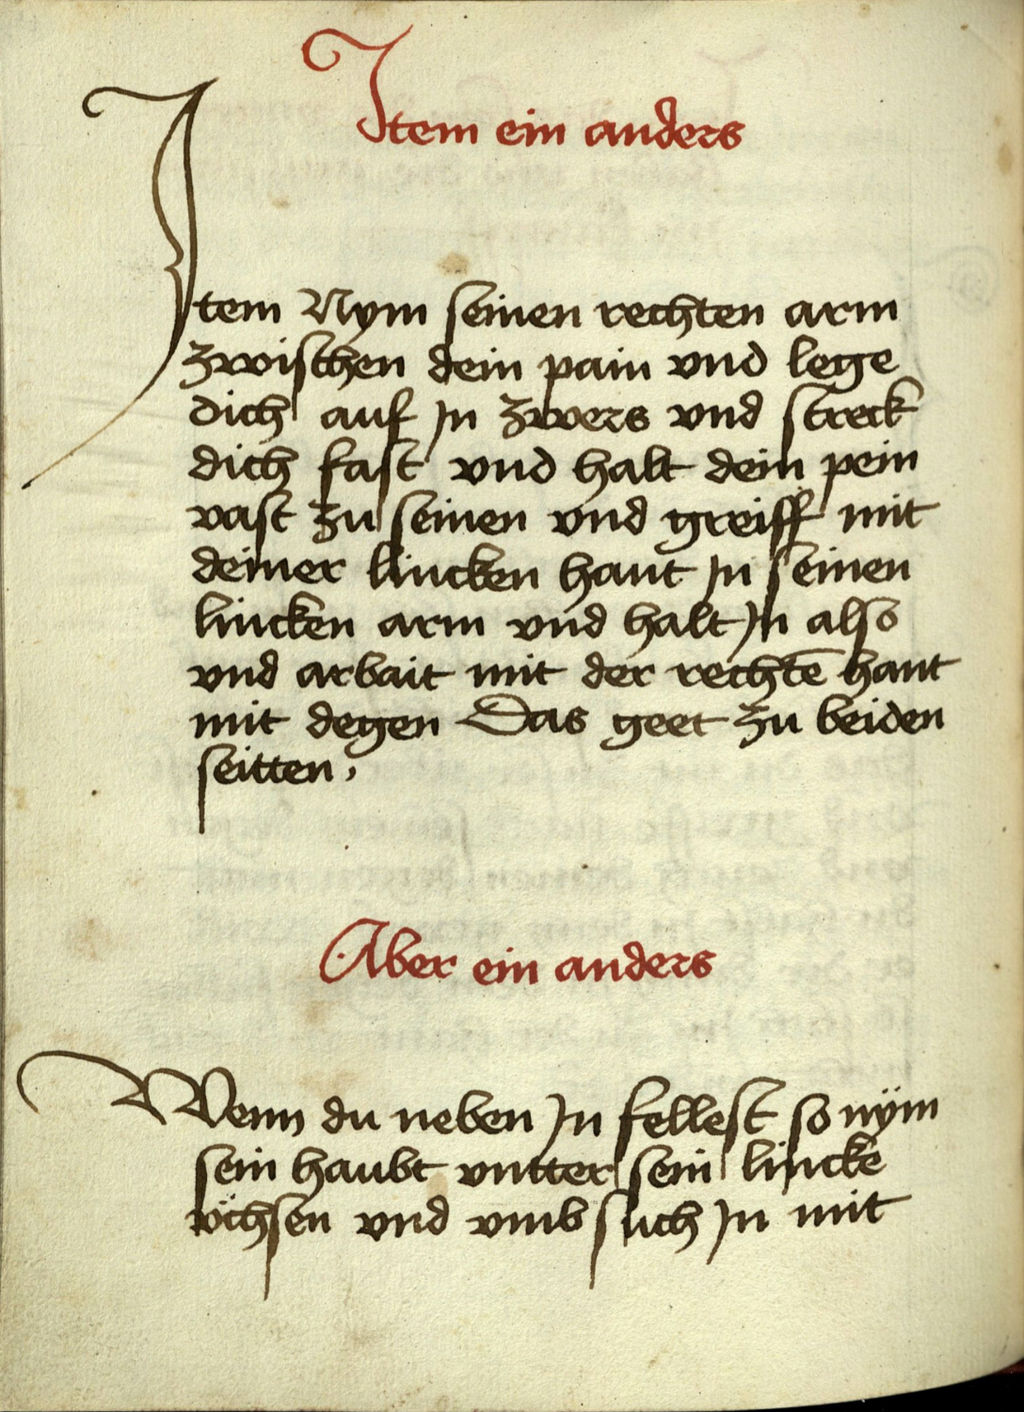 Item ein anders
Item Nym seinen rechten arm
zwischen dein pain vnd lege
dich auf jn zwers vnd streck
dich fast vnd halt dein pein
vast zu seinen vnd greiff mit
deiner lincken hant jn seinen
lincken arm vnd halt jn also
vnd arbait mit der rechtē hant
mit degen Das geet zu beiden
seitten.
Aber ein anders
Wenn du neben jn fellest so nÿm
sein haubt vntter sein lincke
vchsen vnd vmb such jn mit